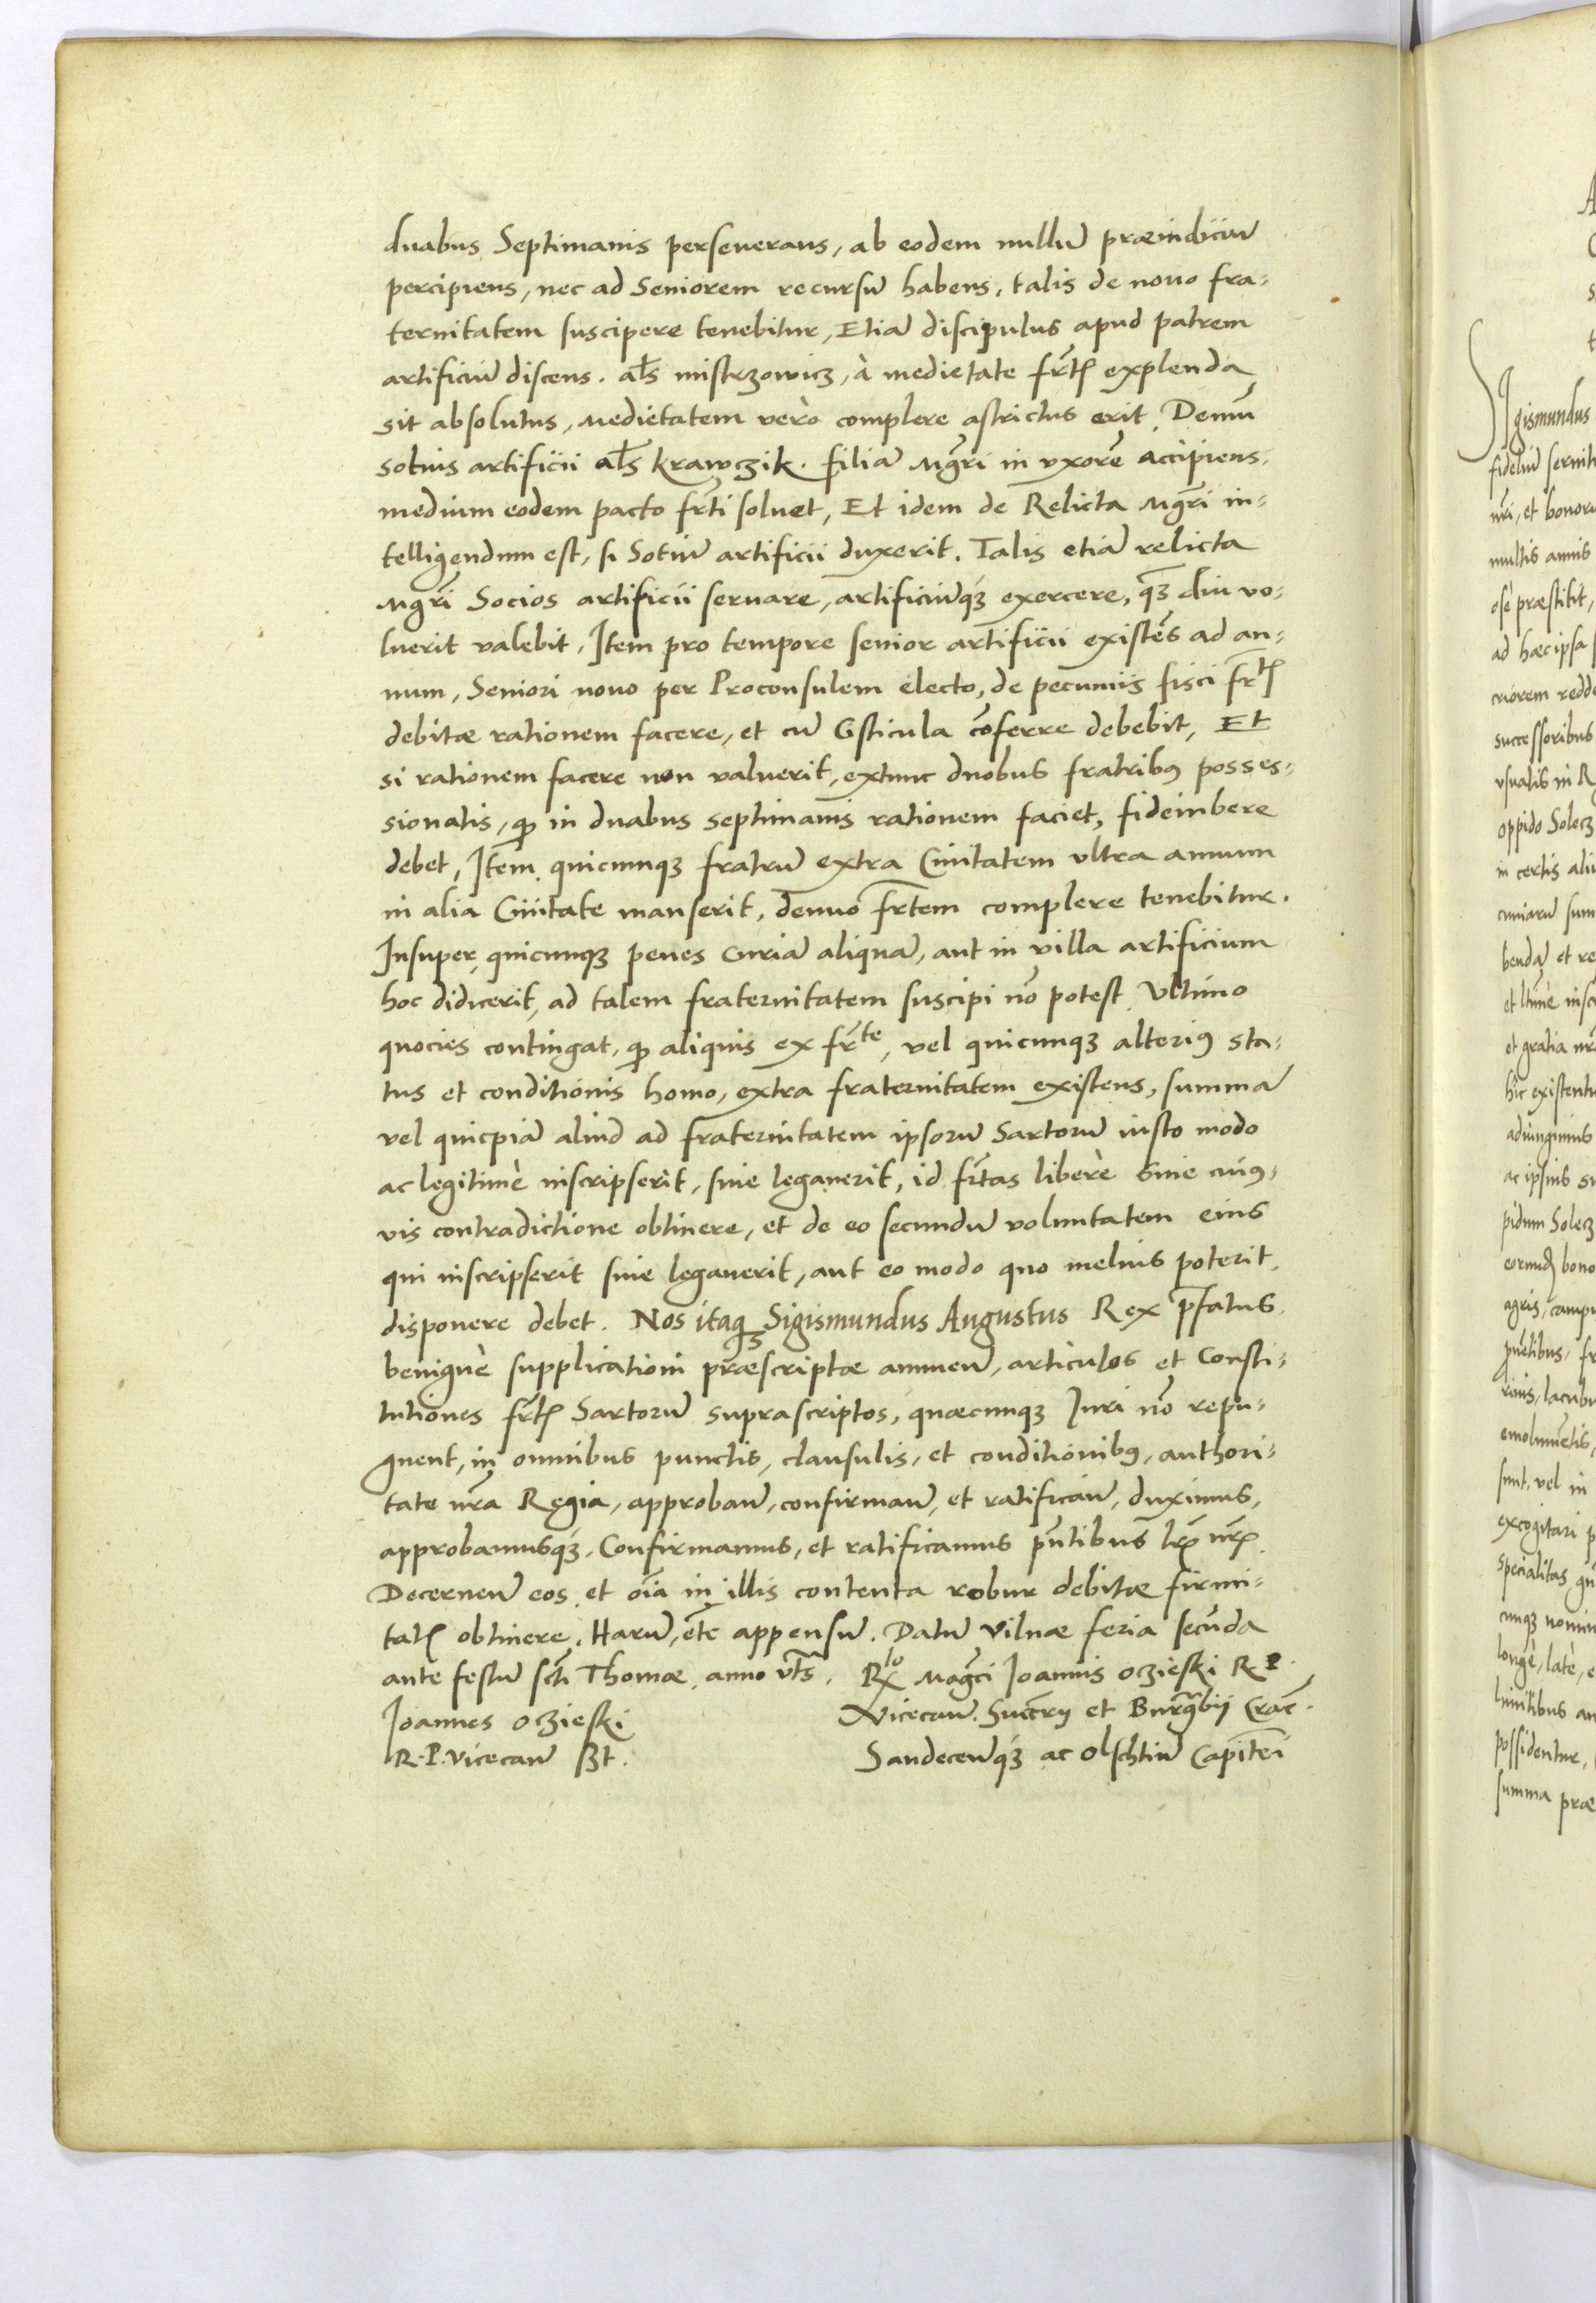 duabus Septimanis perseuerans, ab eodem nullū præiudiciū
percipiens, nec ad Seniorem recursū habens, talis de nouo fra-
ternitatem suscipere tenebitur, Etiā discipulus apud patrem
artificiū discens. als mistrzowicz, à medietate frtis explenda
sit absolutus, Medietatem verò complere astrictus erit. Demū
sotius artificii als krawczik. filiā Mgri in vxorē accipiens,
medium eodem pacto frti soluet, Et idem de Relicta Mgri in-
telligendum est, si Sotiū artificii duxerit. Talis etiā relicta
Mgri Socios artificii seruare, artificiūqȝ exercere, qȝ diu vo-
luerit valebit. Item pro tempore senior artificii existēs ad an-
num, Seniori nouo per Proconsulem electo, de pecuniis fisci frtis
debitæ rationem facere, et cū Csticula cōferre debebit, Et
si rationem facere non valuerit, extunc duobus fratribꝰ posses-
sionatis, qꝫ in duabus septimanis rationem faciet, fideiubere
debet, Item quicunqȝ fratrū extra Ciuitatem vltra annum
in alia Ciuitate manserit, denuo frtem complere tenebitur.
Insuper quicunqȝ penes Curiā aliquā, aut in villa artificium
hoc didicerit, ad talem fraternitatem suscipi nō potest. Vltimo
quocies contingat, qꝫ aliquis ex frte, vel quicunqȝ alteriꝰ sta-
tus et conditionis homo, extra fraternitatem existens, summā
vel quicpiā aliud ad fraternitatem ipsorū Sartorū iusto modo
ac legitimè inscripserit, siue legauerit, id frtas liberè sine cuiꝰ-
vis contradictione obtinere, et de eo secundū voluntatem eius
qui inscripserit siue legauerit, aut eo modo quo melius poterit
disponere debet. Nos itaqȝ Sigismundus Augustus Rex pfatus
benignè supplicationi præscriptæ annuen, articulos et Consti-
tutiones frtis Sartorū suprascriptos, quæcunqȝ Iuri nō repu-
gnent, in omnibus punctis, clausulis, et conditionibꝰ, authori-
tate nrā Regia, approban, confirman, et ratifican, duximus,
approbamusqȝ, Confirmamus, et ratificamus pntibus lris nris.
Decernen eos et oīa in illis contenta robur debitæ firmi-
tatis obtinere. Harū, etc appensū. Datū Vilnæ feria secūda
ante festū scti Thomæ anno vts. Rlo Magci Ioannis oczieski R. P.
Ioannes oczieski Vicecan. Succry et Burgrabii Crac.
R. P. Vicecan sst. Sandecenqȝ ac olschtin Capitei